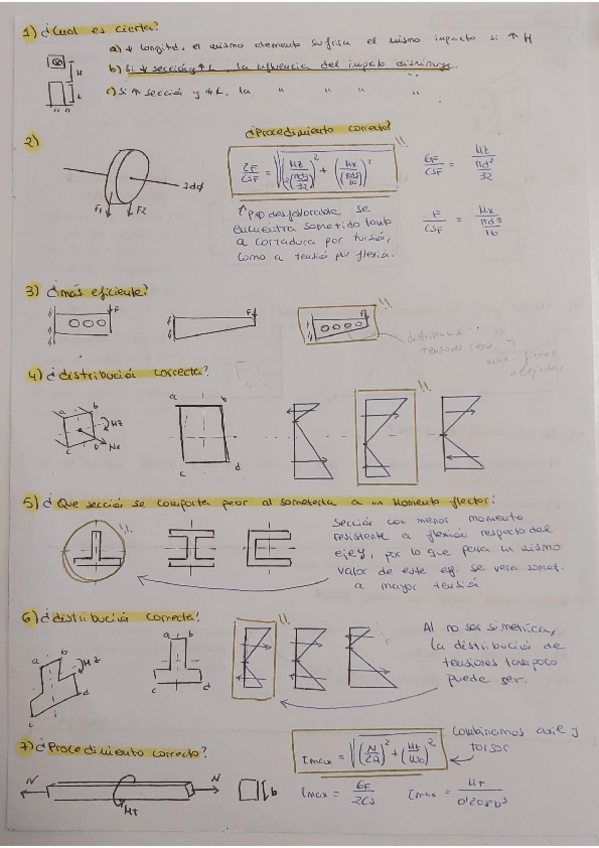 1) ¿Cual es cierta?
a) ↓ longitd, el mismo elemento sufrira el mismo impacto si ↑ H
b) Si ↓ sección y ↑ L, la influencia del impacto disminuye.
c) Si ↑ sección y ↓ L, la " " " "
H
L
2)
¿Procedimiento correcto?
F1 F2
σF/CSF = √((Mz/2(πd³/32))² + (Mx/(πd³/16))²)
σF/CSF = Mz/(πd³/32)
se
encuentra sometido tanto
a cortadura por torsión,
como a tensión por flexión.
F/CSF = Mx/(πd³/16)
3) ¿más eficiente?
F F F
4) ¿distribución correcta?
a b Mz c D Nx
a b c d
5) ¿Que sección se comporta peor al someterla a un momento flector?
Sección con menor momento
resistente a flexión respecto del
eje y, por lo que para un mismo
valor de este esf. se vera somet.
a mayor tensión
6) ¿distribución correcta?
a b Mz c d
a b c d
Al no ser simetrica,
la distribución de
tensiones tampoco
puede ser.
7) ¿Procedimiento correcto?
τmax = √((N/2A)² + (Mt/W0)²)
Combinamos axil y
torsor
N Mt N b
τmax = σF/2CS
τmax = MT/0'208b³